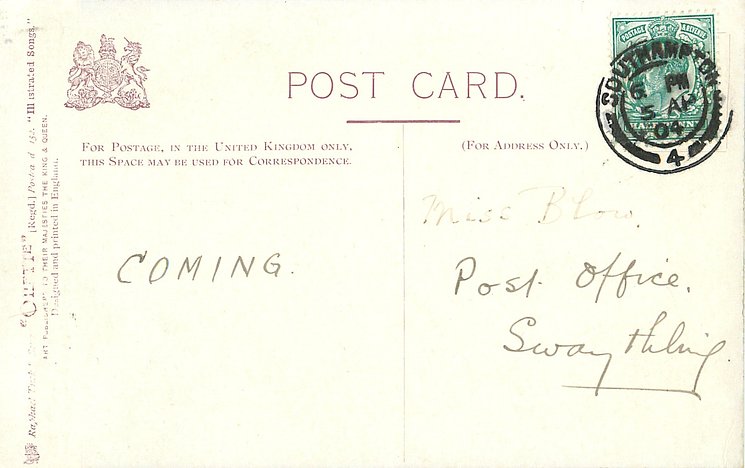 POST CARD.
FOR POSTAGE, IN THE UNITED KINGDOM ONLY,
THIS SPACE MAY BE USED FOR CORRESPONDENCE.
(FOR ADDRESS ONLY.)
POSTAGE & REVENUE
SOUTHAMPTON
6 PM
5 AP
04
4
COMING.
Miss Blow.
Post Office.
Swaythling
Raphael "OILETTE" [Regd.] Postcard "Illustrated Songs."
ART PUBLISHERS TO THEIR MAJESTIES THE KING & QUEEN.
Designed and printed in England.